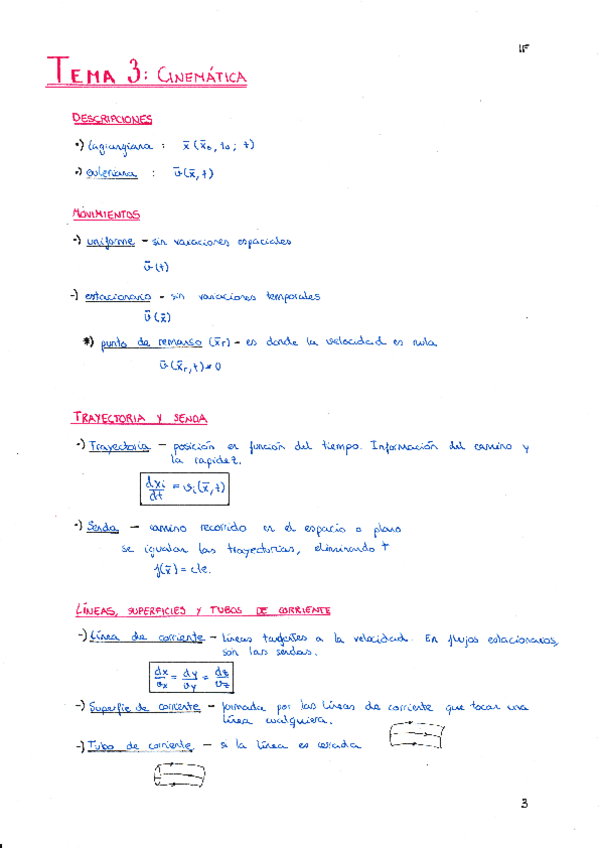 IF
TEMA 3: CINEMÁTICA
DESCRIPCIONES
-) Lagrangiana : x̄ (x̄₀, t₀; t)
-) euleriana : v̄(x̄, t)
MOVIMIENTOS
-) uniforme - sin variaciones espaciales
v̄(t)
-) estacionario - sin variaciones temporales
v̄(x̄)
*) punto de remanso (x̄r) - es donde la velocidad es nula
v̄(x̄r, t) = 0
TRAYECTORIA Y SENDA
-) Trayectoria - posición en función del tiempo. Información del camino y
la rapidez.
dxi/dt = vi(x̄, t)
-) Senda - camino recorrido en el espacio o plano
se igualan las trayectorias, eliminando t
f(x̄) = cte.
LÍNEAS, SUPERFICIES Y TUBOS DE CORRIENTE
-) Línea de corriente - líneas tangentes a la velocidad. En flujos estacionarios,
son las sendas.
dx/vx = dy/vy = dz/vz
-) Superfie de corriente - formada por las líneas de corriente que tocan una
línea cualquiera.
-) Tubo de corriente - si la línea es cerrada
3